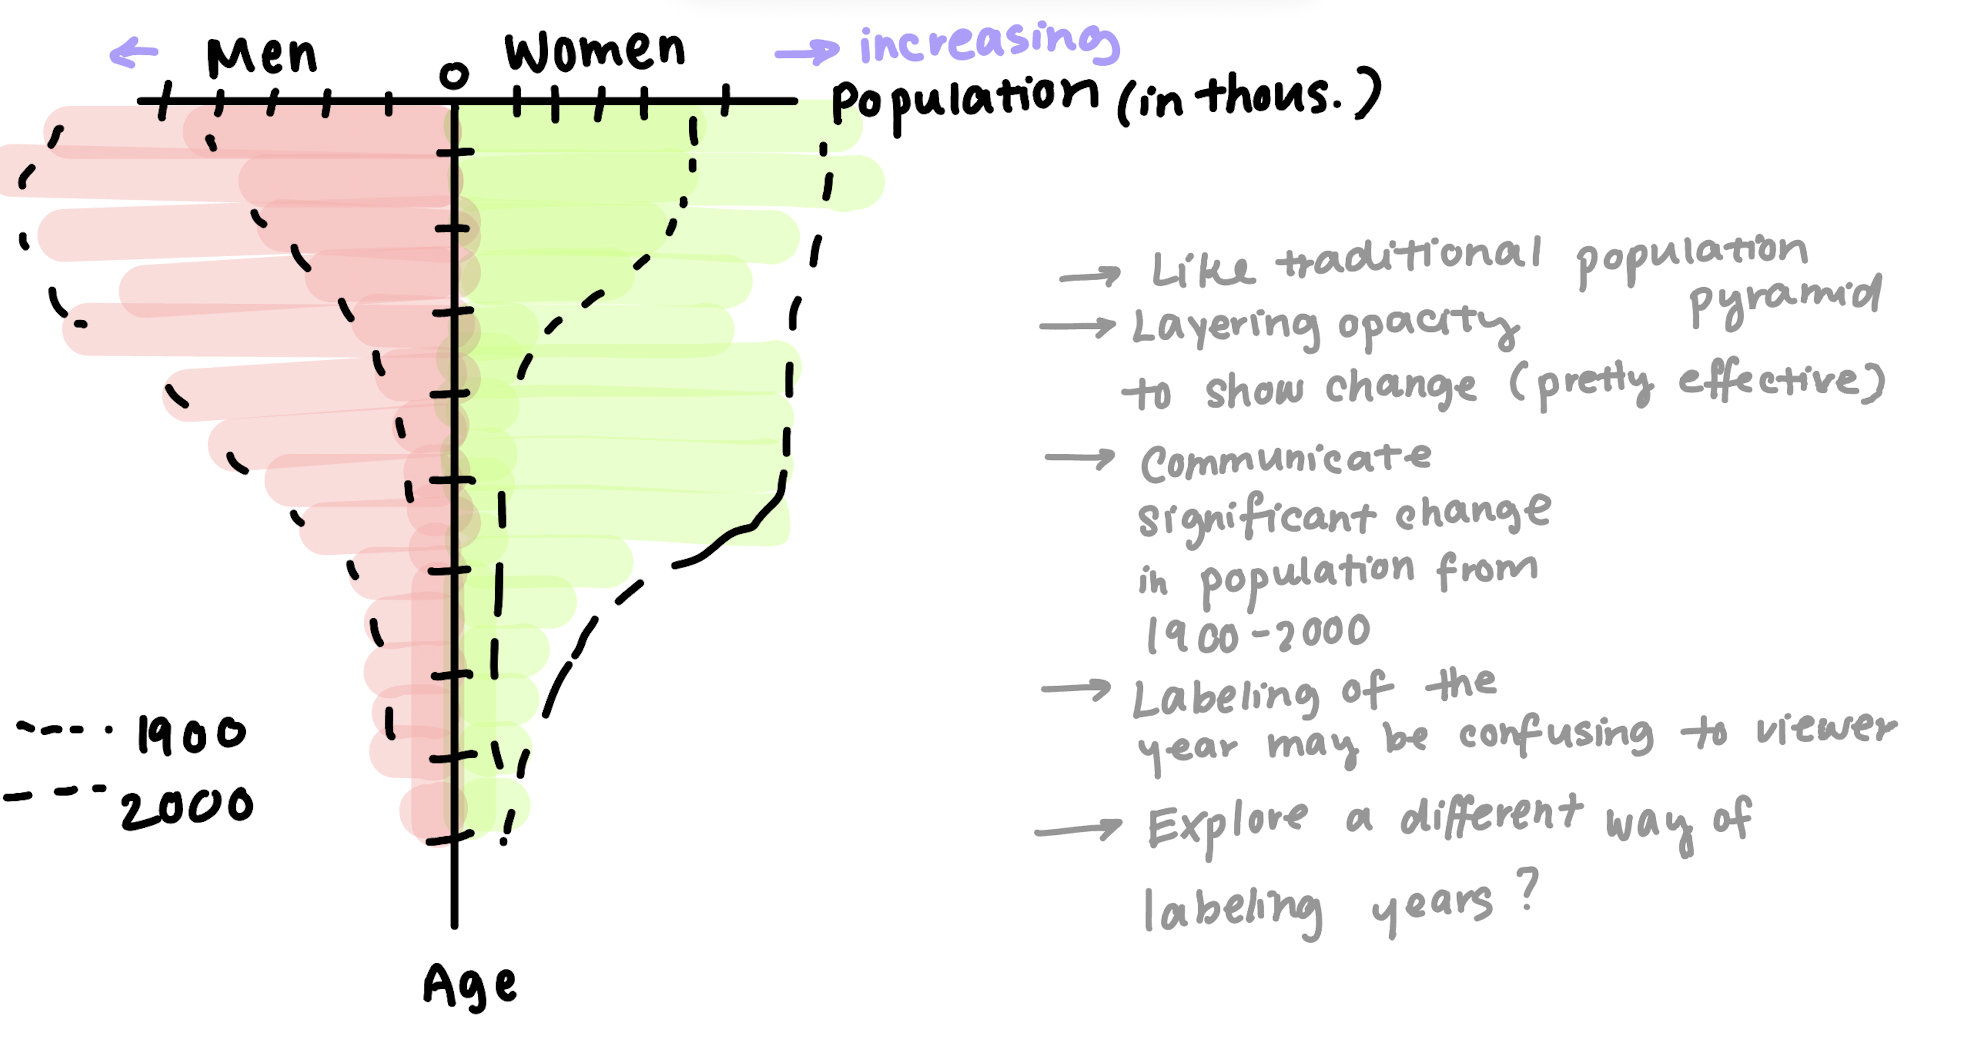 ← Men
0
Women
→ increasing
Population (in thous.)
→ Like traditional population
pyramid
→ Layering opacity
to show change (pretty effective)
→ Communicate
significant change
in population from
1900-2000
→ Labeling of the
year may be confusing to viewer
→ Explore a different way of
labeling years?
1900
2000
Age